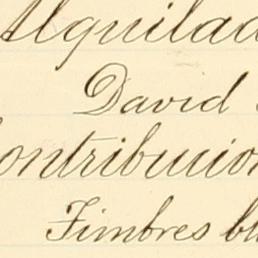 Alquilad
David
ontribucion
Timbres bl